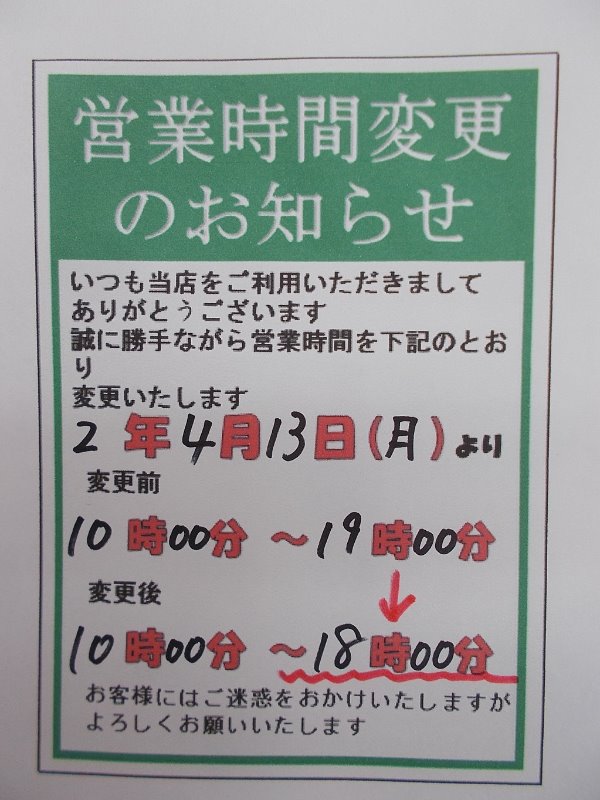 営業時間変更
のお知らせ
いつも当店をご利用いただきまして
ありがとうございます
誠に勝手ながら営業時間を下記のとお
り
変更いたします
2年4月13日(月)より
変更前
10時00分～19時00分
変更後
10時00分～18時00分
お客様にはご迷惑をおかけいたしますが
よろしくお願いいたします